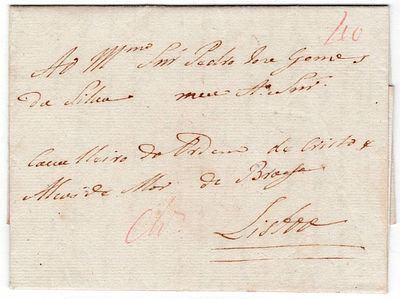 40
Ao Illmo Snr Pedro Jose Gomes
da Silva meu Snr
Cavalleiro da Ordem de Cristo &
Mor de Braga
Lisboa